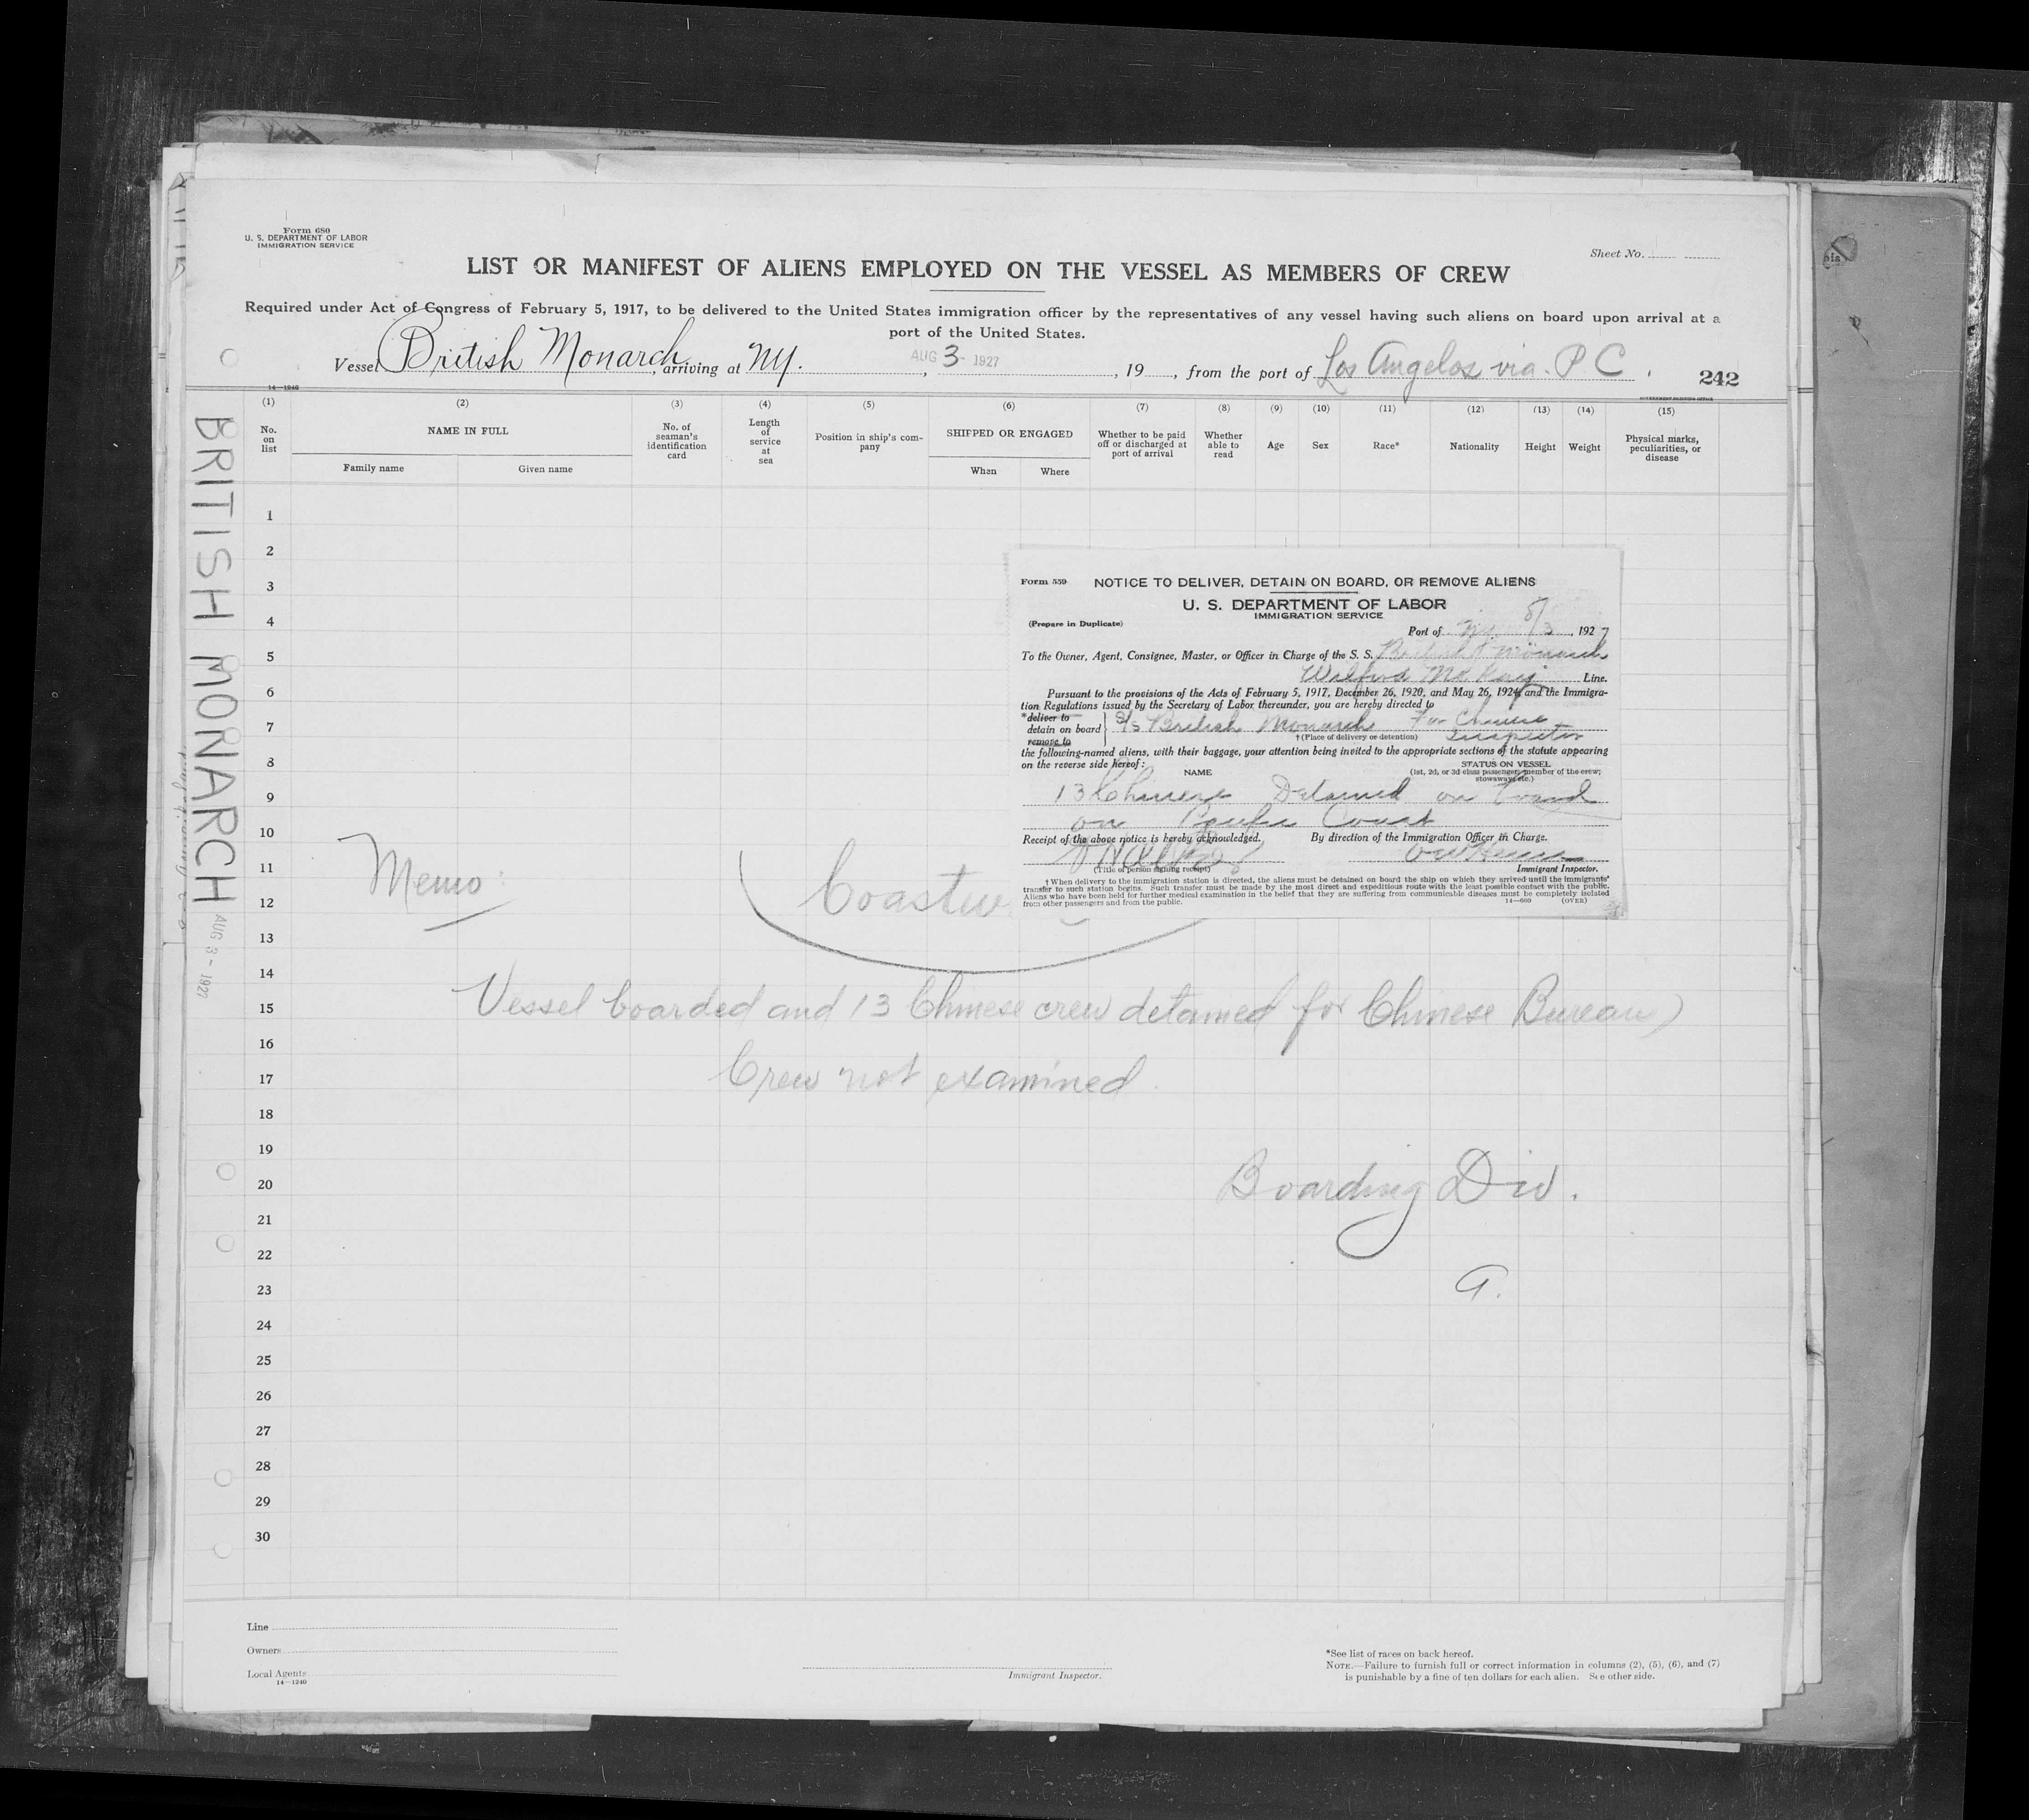 Form 680
U. S. DEPARTMENT OF LABOR
IMMIGRATION SERVICE
Sheet No.
LIST OR MANIFEST OF ALIENS EMPLOYED ON THE VESSEL AS MEMBERS OF CREW
Required under Act of Congress of February 5, 1917, to be delivered to the United States immigration officer by the representatives of any vessel having such aliens on board upon arrival at a
port of the United States.
Vessel British Monarch, arriving at NY. AUG 3 - 1927, 19, from the port of Los Angelos via. P. C.
14—1240
242
GOVERNMENT PRINTING OFFICE
(1) (2) (3) (4) (5) (6) (7) (8) (9) (10) (11) (12) (13) (14) (15)
No. on list
NAME IN FULL
Family name
Given name
No. of seaman's identification card
Length of service at sea
Position in ship's company
SHIPPED OR ENGAGED
When
Where
Whether to be paid off or discharged at port of arrival
Whether able to read
Age
Sex
Race*
Nationality
Height
Weight
Physical marks, peculiarities, or disease
1
2
3
4
5
6
7
8
9
10
11
12
13
14
15
16
17
18
19
20
21
22
23
24
25
26
27
28
29
30
BRITISH MONARCH AUG 3 - 1927
Form 559
NOTICE TO DELIVER, DETAIN ON BOARD, OR REMOVE ALIENS
U. S. DEPARTMENT OF LABOR
IMMIGRATION SERVICE
(Prepare in Duplicate)
Port of N.Y. 8/3, 1927
To the Owner, Agent, Consignee, Master, or Officer in Charge of the S. S. British Monarch
Wilfred McKay Line.
Pursuant to the provisions of the Acts of February 5, 1917, December 26, 1920, and May 26, 1924, and the Immigra-
tion Regulations issued by the Secretary of Labor thereunder, you are hereby directed to
*deliver to
detain on board
remove to
S/S British Monarch For Chinese
Inspector
†(Place of delivery or detention)
the following-named aliens, with their baggage, your attention being invited to the appropriate sections of the statute appearing
on the reverse side hereof:
NAME
STATUS ON VESSEL
(1st, 2d, or 3d class passenger; member of the crew;
stowaways, etc.)
13 Chinese Detained on board
on Pacific Coast
Receipt of the above notice is hereby acknowledged.
By direction of the Immigration Officer in Charge.
(Title of person signing receipt)
Immigrant Inspector.
†When delivery to the immigration station is directed, the aliens must be detained on board the ship on which they arrived until the immigrants'
transfer to such station begins. Such transfer must be made by the most direct and expeditious route with the least possible contact with the public.
Aliens who have been held for further medical examination in the belief that they are suffering from communicable diseases must be completely isolated
from other passengers and from the public.
14—660
(OVER)
Memo:
Coastw
Vessel boarded and 13 Chinese crew detained for Chinese Bureau)
Crew not examined.
Boarding Div.
a.
Line
Owners
Local Agents
14—1240
Immigrant Inspector.
*See list of races on back hereof.
NOTE.—Failure to furnish full or correct information in columns (2), (5), (6), and (7)
is punishable by a fine of ten dollars for each alien. See other side.